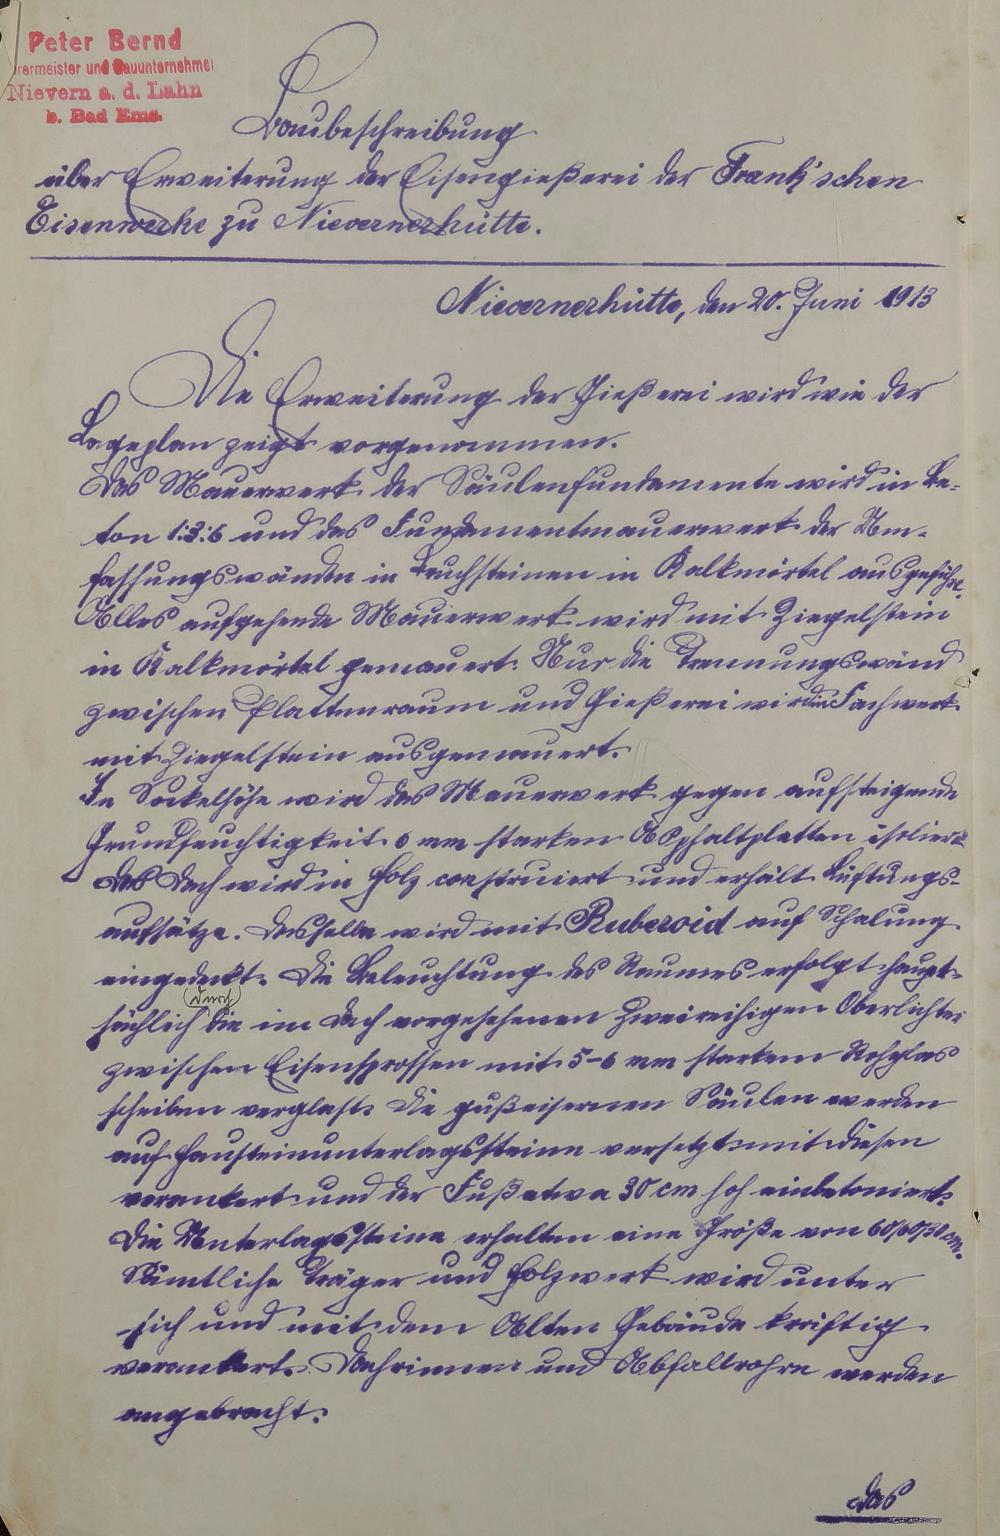 Peter Bernd
rermeister und Bauunternehmer
Nievern a. d. Lahn
b. Bad Ems.
Baubeschreibung
über Erweiterung der Eisengießerei der Frank'schen
Eisenwerke zu Nievernerhütte.
Nievernerhütte, den 20. Juni 1913
Die Erweiterung der Gießerei wird wie der
Lageplan zeigt vorgenommen.
Das Mauerwerk der Säulenfundamente wird in Be-
ton 1:3:6 und das Fundamentmauerwerk der Um-
fassungswänden in Bruchsteinen in Kalkmörtel ausgeführt.
Alles aufgehende Mauerwerk wird mit Ziegelstein
in Kalkmörtel gemauert. Nur die Trennungswand
zwischen Plattenraum und Gießerei wird in Fachwerk
mit Ziegelstein ausgemauert.
In Sockelhöhe wird das Mauerwerk gegen aufsteigende
Grundfeuchtigkeit 6 mm starken Asphaltplatten isoliert
Das Dach wird in Holz construiert und erhält Lüftungs-
aufsätze. Dasselbe wird mit Ruberoid auf Schalung
eingedeckt. Die Beleuchtung des Raumes erfolgt haupt-
sächlich (durch) die im Dach vorgesehenen zweireihigen Oberlichter
zwischen Eisensprossen mit 5-6 mm starkem Rohglas
scheiben verglast. Die gußeisernen Säulen werden
auf Hausteinunterlagssteine versetzt mit diesen
verankert und der Fuß etwa 30 cm hoch einbetoniert.
Die Unterlagssteine erhalten eine Größe von 60/60/30 cm.
Sämtliche Träger und Holzwerk wird unter
sich und mit dem Alten Gebäude kräftig
verankert. Dachrinnen und Abfallrohre werden
angebracht.
Das